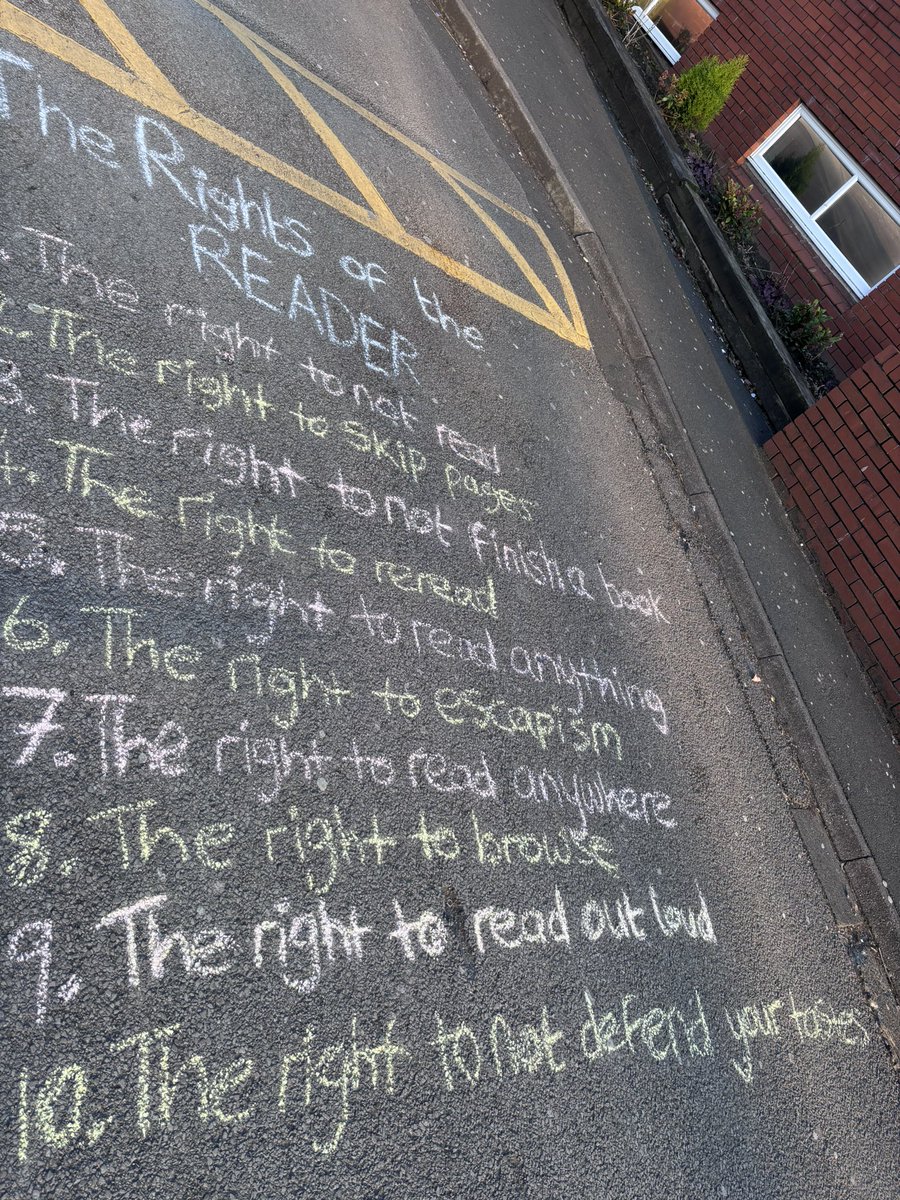 The Rights of the
READER
1. The right to not read
2. The right to skip pages
3. The right to not finish a book
4. The right to reread
5. The right to read anything
6. The right to escapism
7. The right to read anywhere
8. The right to browse
9. The right to read out loud
10. The right to not defend your tastes